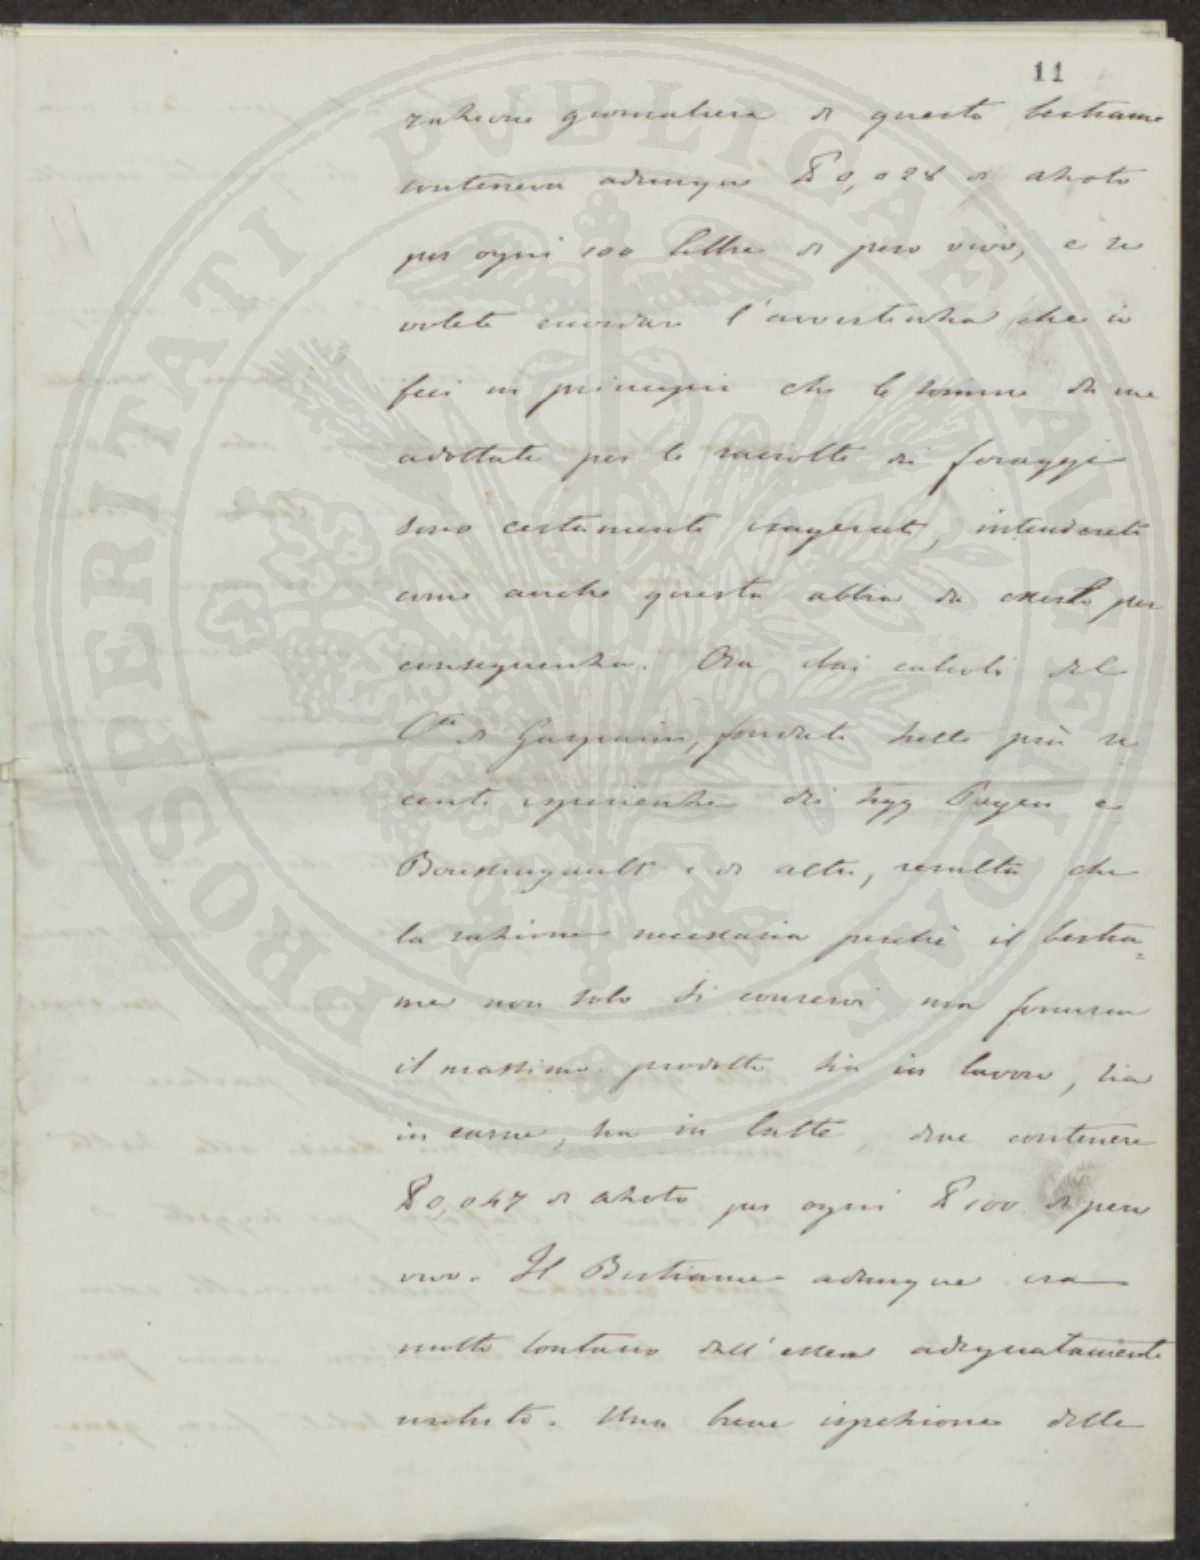 11
razione giornaliera di questo bestiame
conteneva adunque ℔ 0,028 di azoto
per ogni 100 libbre di peso vivo, e se
volete ricordare l'avvertenza che io
feci in principio che le somme da me
adottate per le raccolte di foraggi
sono certamente esagerate, intenderete
come anche questa abbia da esserlo per
conseguenza. Ora dai calcoli del
C.te di Gasparin, fondati sulle più re
centi esperienze dei Sigg. Payen e
Boussingault e di altri, resulta che
la razione necessaria perchè il bestia=
me non solo si conservi ma fornisca
il massimo prodotto sia in lavoro, sia
in carne, sia in latte, deve contenere
℔ 0,047 di azoto per ogni ℔ 100 di peso
vivo. Il Bestiame adunque era
molto lontano dall'essere adeguatamente
nutrito. Una breve ispezione delle
PROSPERITATI PUBLICAE AUGENDAE